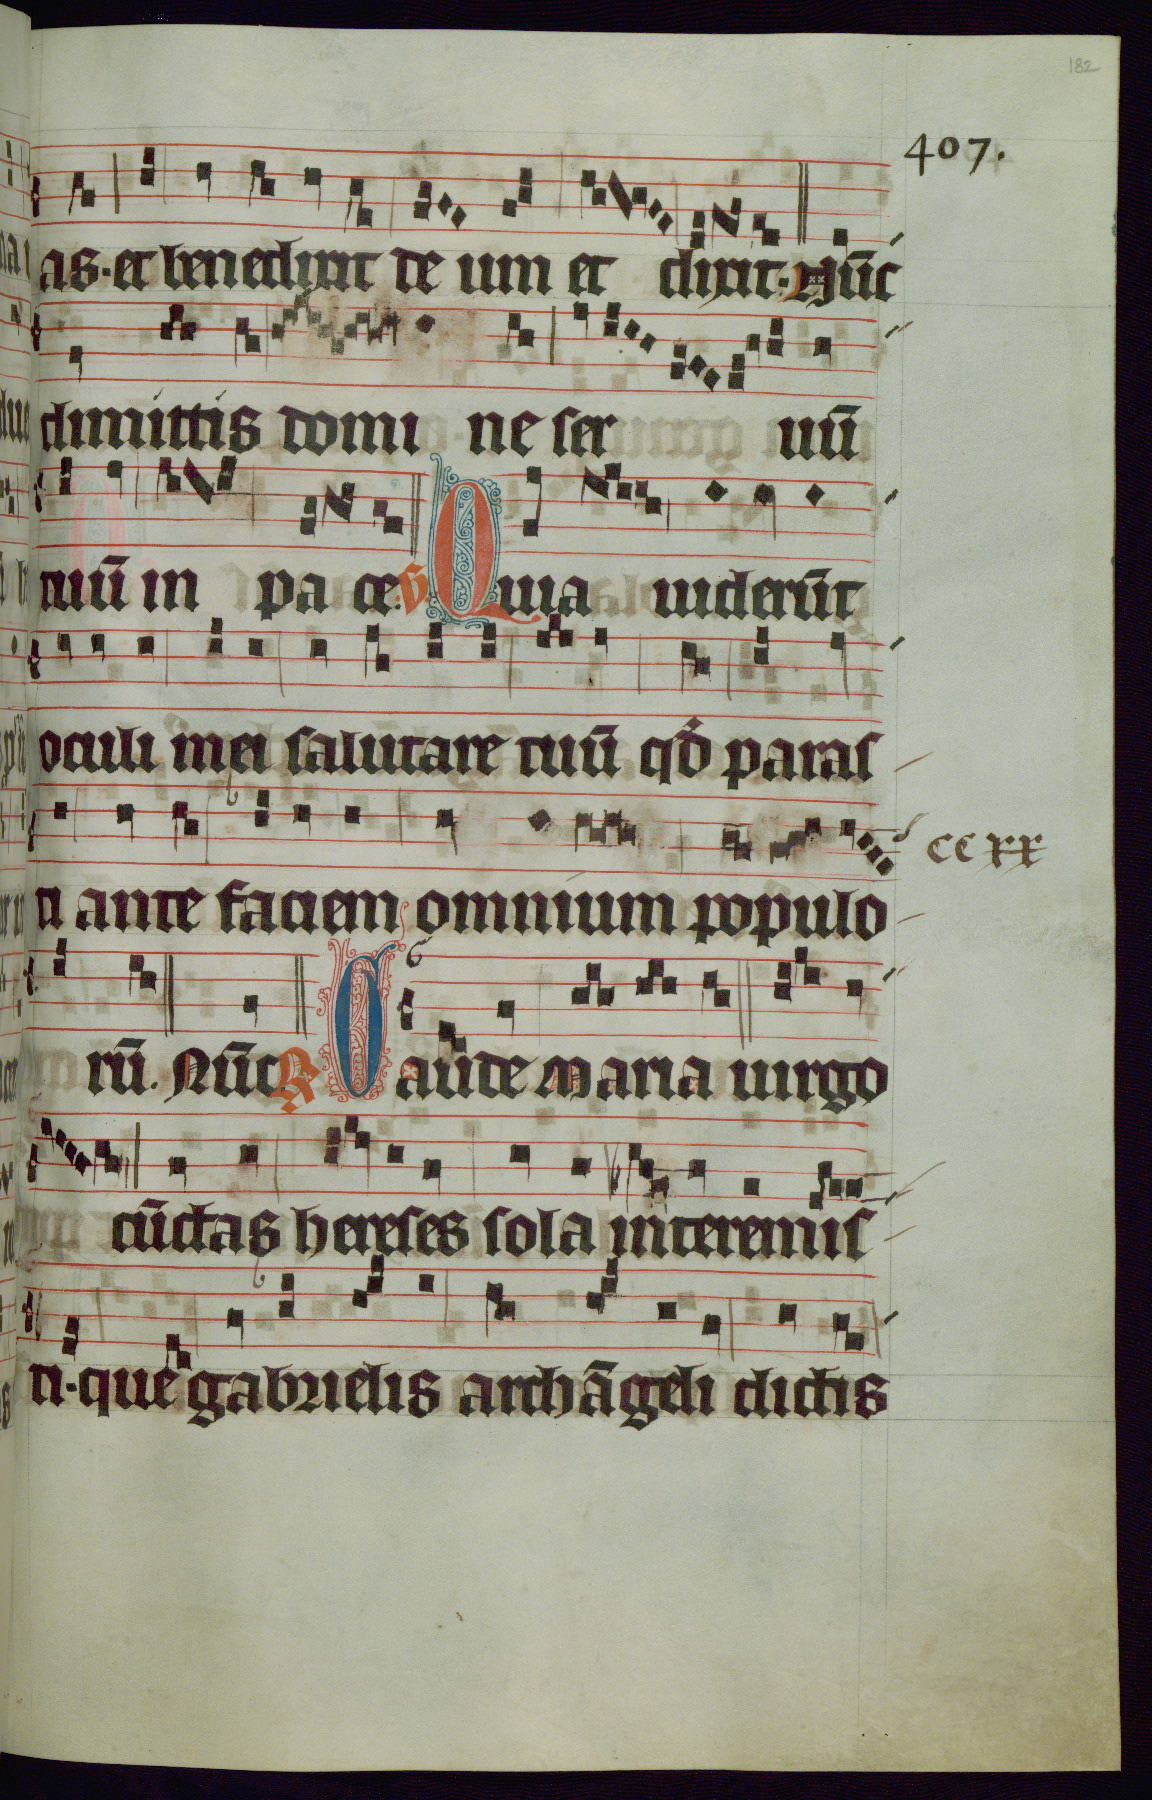 182
407.
as · et benedixit deum et dixit · Nūc
dimittis domine seruū
tuū in pace. V. Quia uiderūt
oculi mei salutare tuū qđ paras
ccxx
ti ante faciem omnium populo
rū. Nūc R Gaude maria uirgo
cūctas hereses sola interemis
ti · que gabrielis archāgeli dictis